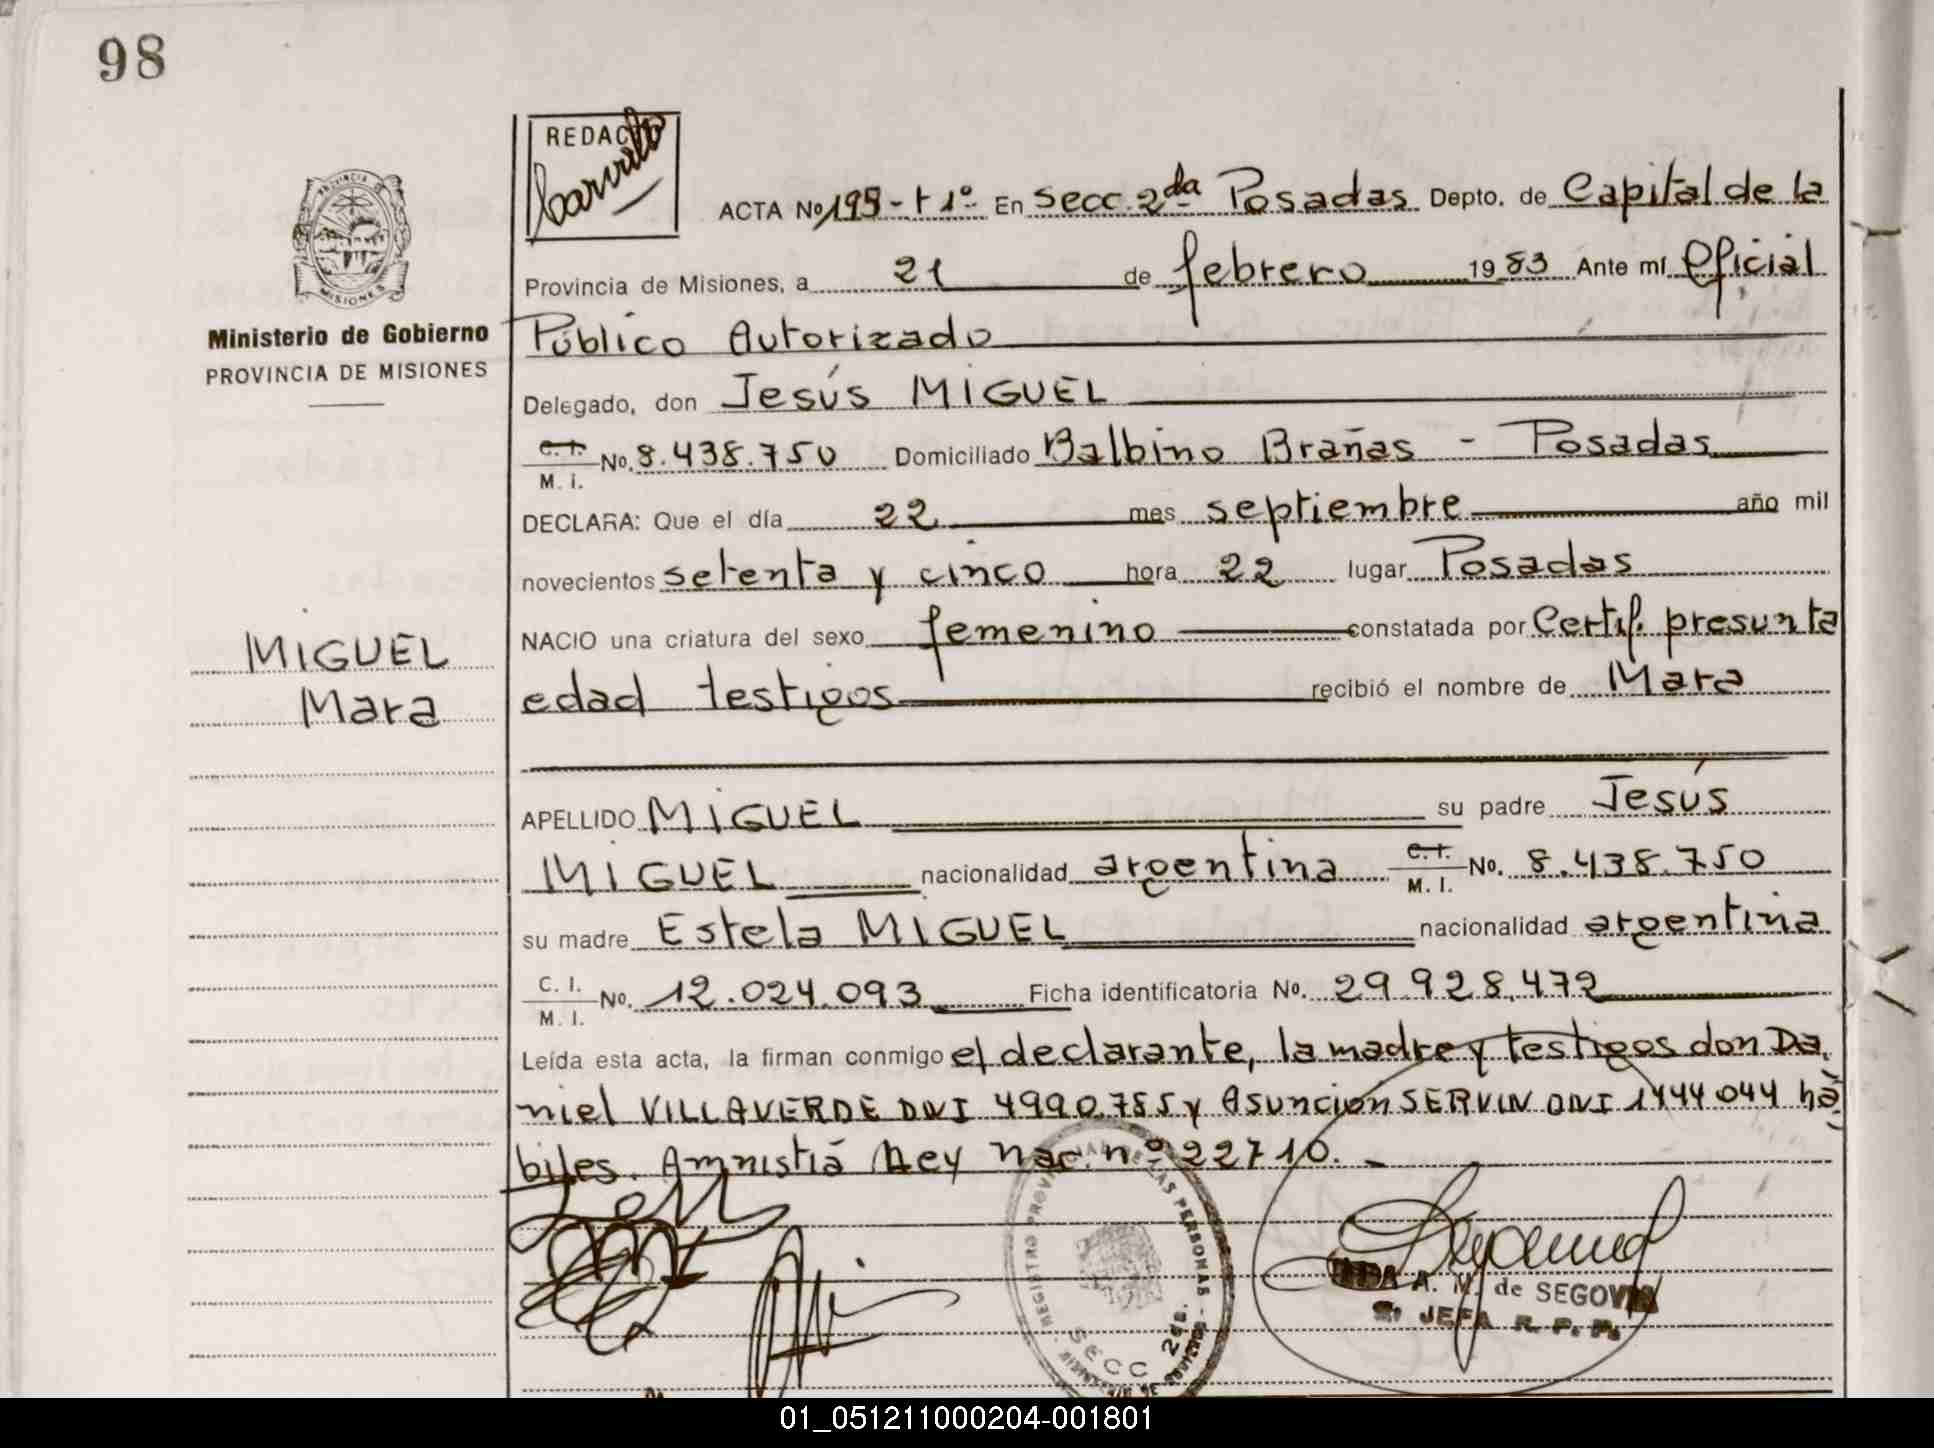 98
REDACTO
ACTA No 195-t 1º En Secc. 2da Posadas Depto. de Capital de la
PROVINCIA DE
MISIONES
Provincia de Misiones, a 21 de febrero 1983 Ante mí Oficial
Ministerio de Gobierno
Público Autorizado
PROVINCIA DE MISIONES
Delegado, don Jesús MIGUEL
C.I. M. I. No. 8.438.750 Domiciliado Balbino Brañas - Posadas
DECLARA: Que el día 22 mes septiembre año mil
novecientos setenta y cinco hora 22 lugar Posadas
MIGUEL
NACIO una criatura del sexo femenino constatada por Certif. presunta
Mara
edad testigos recibió el nombre de Mara
APELLIDO MIGUEL su padre Jesús
MIGUEL nacionalidad argentina C.I. M. I. No. 8.438.750
su madre Estela MIGUEL nacionalidad argentina
C. I. M. I. No. 12.024.093 Ficha identificatoria No. 29.928.472
Leída esta acta, la firman conmigo el declarante, la madre y testigos don Da.
niel VILLAVERDE DNI 4990.785 y Asunción SERVIN DNI 1444044 há
biles. Amnistiá Ley nac. nº 22710. -
REGISTRO PROVINCIAL DE LAS PERSONAS
SECC 2da.
A. M. de SEGOVIA
JEFA R. P. P.
01_051211000204-001801